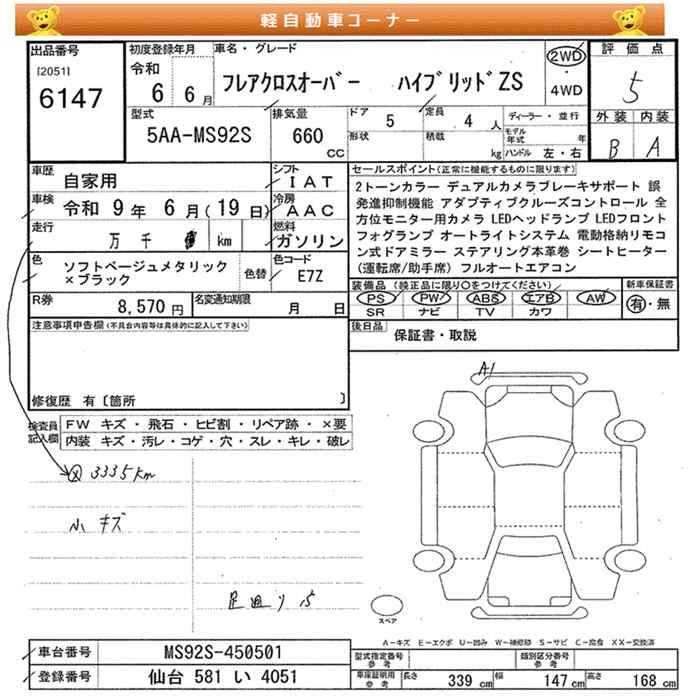 軽自動車コーナー
出品番号
[2051]
6147
初度登録年月
令和
6 6月
車名・グレード
フレアクロスオーバー ハイブリッドZS
2WD
・
4WD
評価点
5
外装 内装
B A
型式
5AA-MS92S
排気量
660
cc
ドア
5
定員
4 人
形状
積載
kg
ディーラー・並行
モデル年式 年
ハンドル 左・右
車歴
自家用
シフト
IAT
車検
令和 9年 6月(19日)
冷房
AAC
走行
万 千 km
燃料
ガソリン
色
ソフトベージュメタリック
×ブラック
色替
色コード
E7Z
R券
8,570円
名変通知期限
月 日
セールスポイント(正常に機能するものに限ります)
2トーンカラー デュアルカメラブレーキサポート 誤
発進抑制機能 アダプティブクルーズコントロール 全
方位モニター用カメラ LEDヘッドランプ LEDフロント
フォグランプ オートライトシステム 電動格納リモコ
ン式ドアミラー ステアリング本革巻 シートヒーター
(運転席/助手席) フルオートエアコン
装備品 (純正品に限り○をつけてください)
PS PW ABS エアB AW
SR ナビ TV カワ
新車保証書
有・無
後日品
保証書・取説
注意事項申告欄(不具合内容等は具体的に記入して下さい)
修復歴 有〔箇所 〕
検査員
記入欄
FW キズ・飛石・ヒビ割・リペア跡・×要
内装 キズ・汚レ・コゲ・穴・スレ・キレ・破レ
3335km
小キズ
足廻りサ
A1
スペア
A－キズ E－エクボ U－凹み W－補修跡 S－サビ C－腐食 XX－交換済
車台番号
MS92S-450501
登録番号
仙台 581 い 4051
型式指定番号
参考
類別区分番号
参考
車庫証明用
参考
長さ 339 cm
幅 147 cm
高さ 168 cm